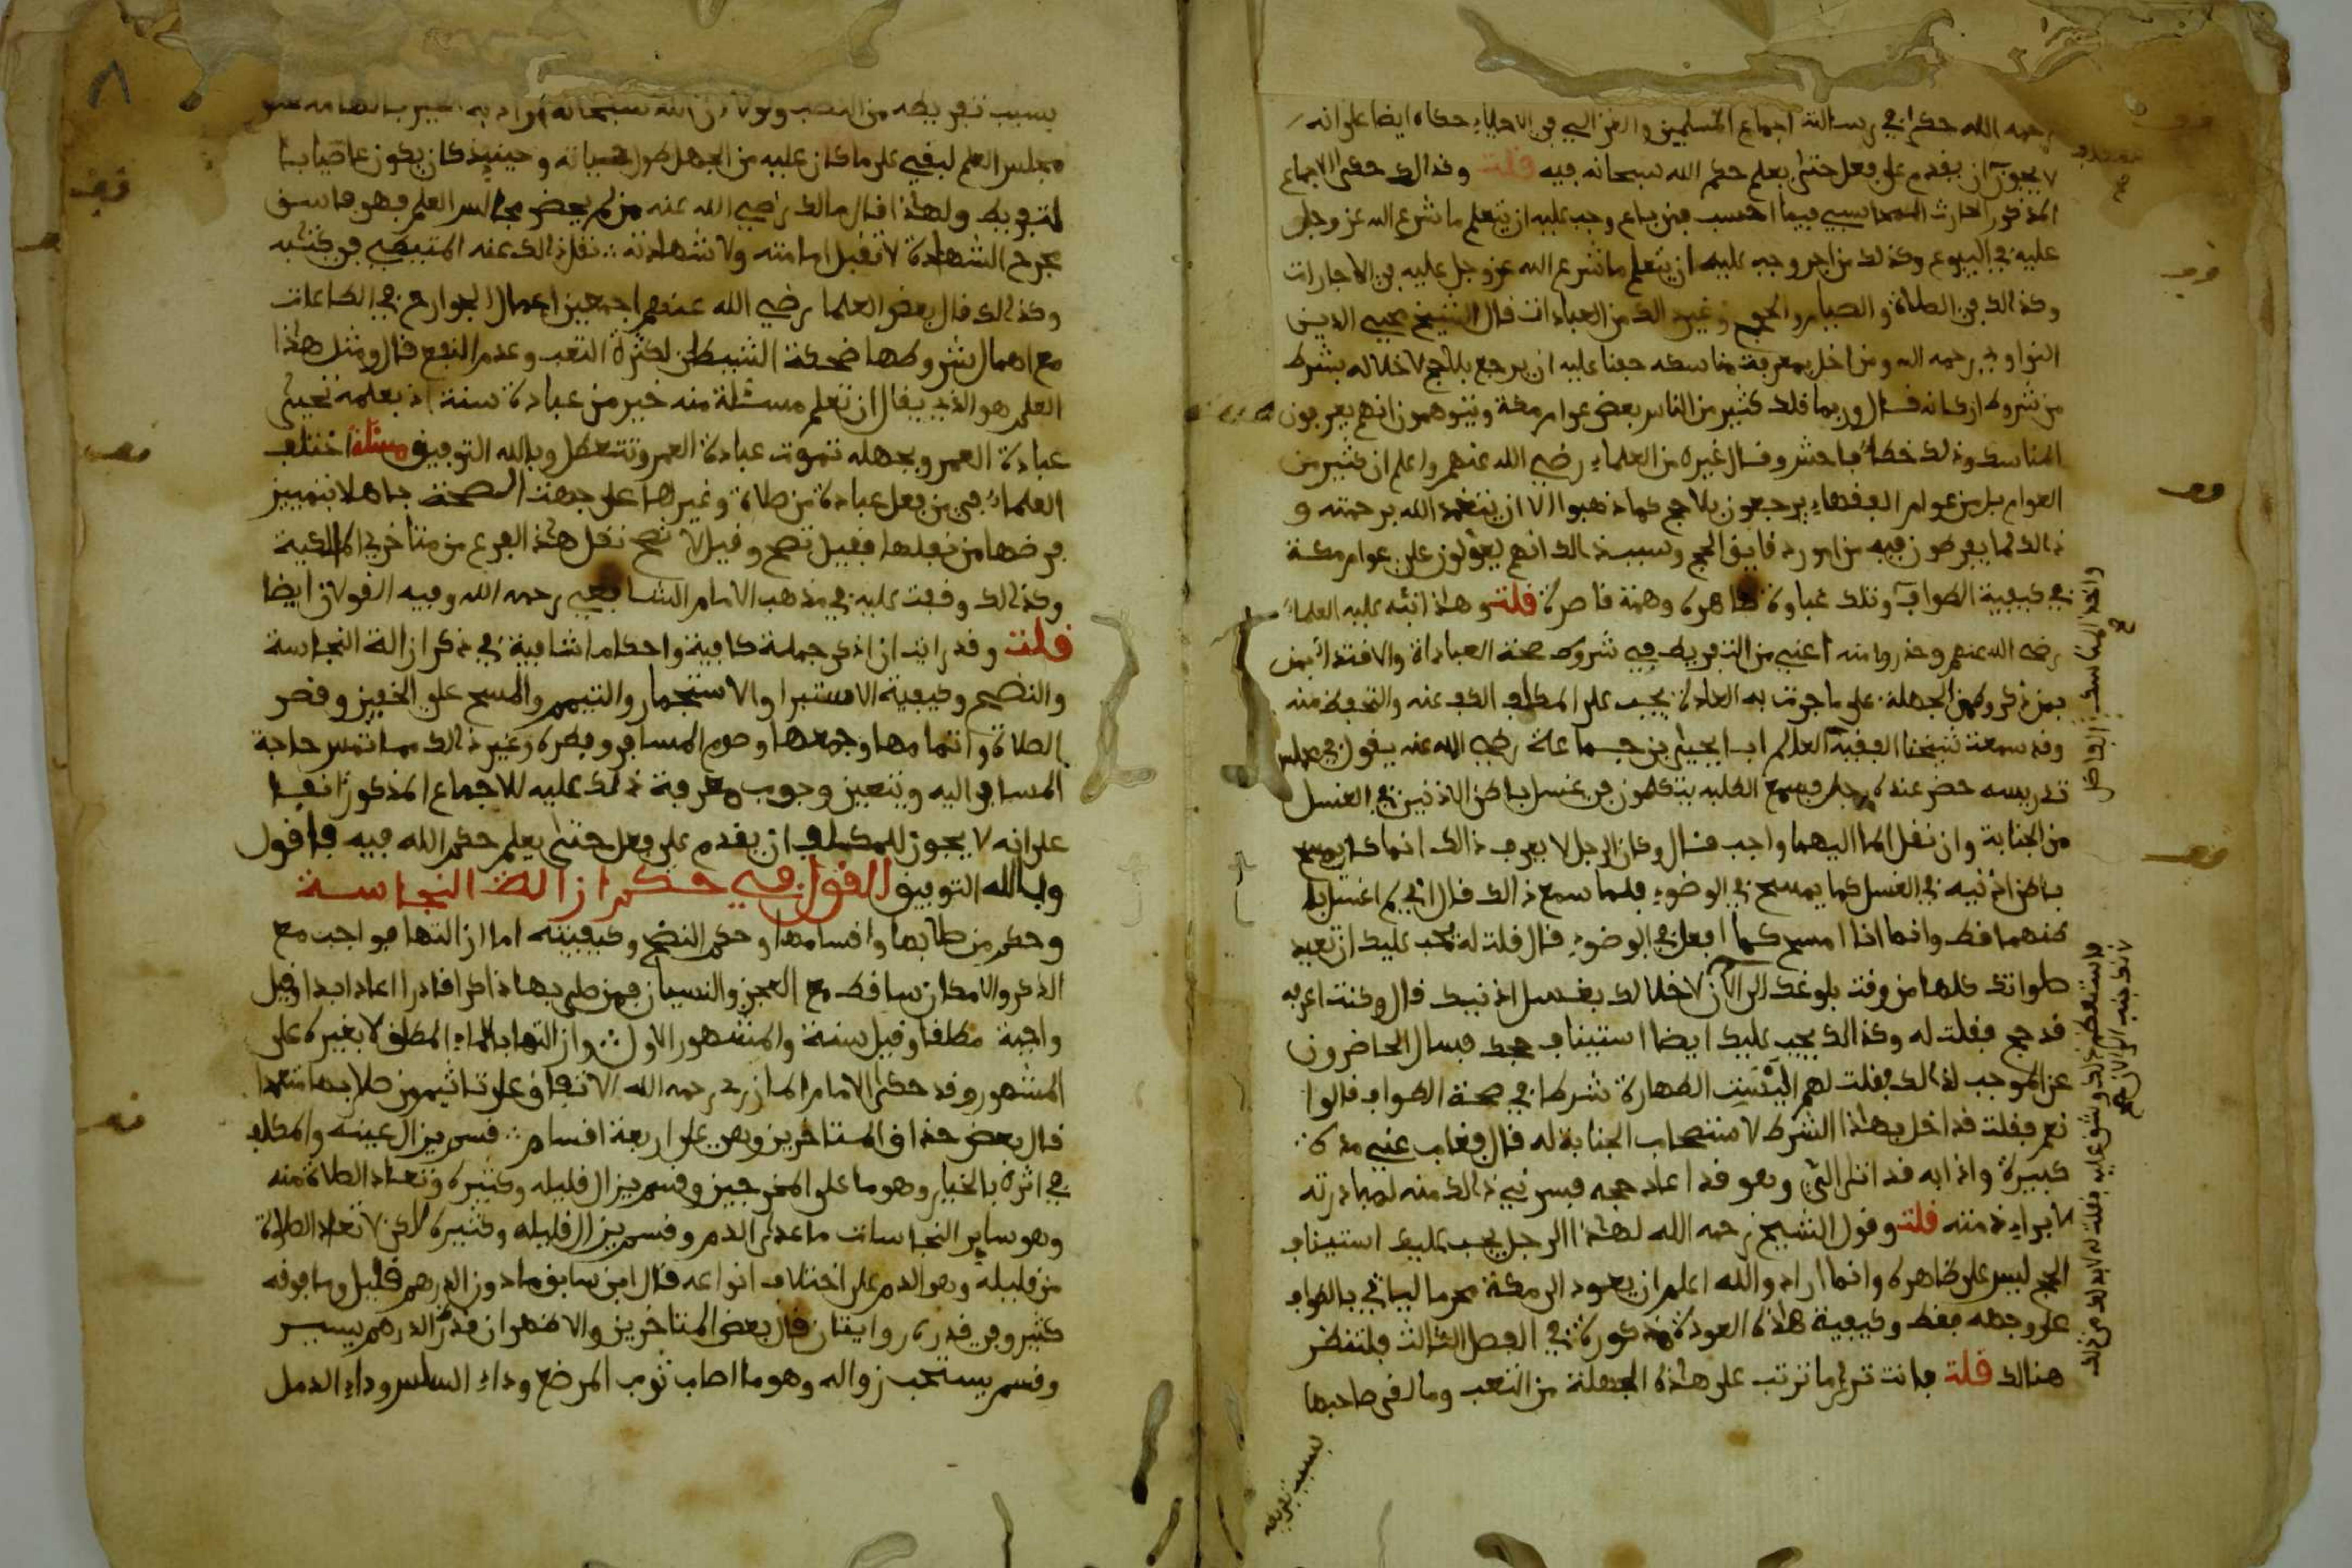 رحمه الله حكى في رسالته اجماع المسلمين والغزالي في الاحياء حكاه ايضا على انه
لا يجوز ان يقدم على فعل حتى يعلم حكم الله سبحانه فيه قلت وقد الف حكى الاجماع
المذكور الحارث المحاسبي فيما احسب فمن باع وجب عليه ان يتعلم ما شرع الله عز وجل
عليه في البيوع وكذلك من اجر وجب عليه ان يتعلم ما شرع الله عز وجل عليه في الاجارات
وكذالك في الصلاة والصيام والحج وغير ذالك من العبادات قال الشيخ محيي الدين
النواوي رحمه الله ومن اخل بمعرفة مناسكه خفنا عليه ان يرجع بلا حج لاخلاله بشرط
من شروطه او ركانه قال وربما قلد كثير من الناس بعض عوام مكة ويتوهمون انهم يعرفون
المناسك وذلك خطأ فاحش وقال غيره من العلماء رضي الله عنهم واعلم ان كثير من
العوام بل من عوام الفقهاء يرجعون بلا حج كما ذهبوا الا ان يتغمد الله برحمته و
ذالك لما يفرطون فيه من امور دقايق الحج وسبب ذالك انهم يعولون على عوام مكة
في كيفية الطواف وتلك غباوة ظاهرة وهمة قاصرة قلت وهذا انبه عليه العلماء
رضي الله عنهم وحذروا منه اعني من التفريط في شروط صحة العبادة والاقتداء بمن
بمن ذكر وكهن الجهلة على ما جرت به العادة يجب على المكلف الكف عنه والتحفظ منه
وقد سمعت شيخنا الفقيه العالم ابا يحيى بن جماعة رضي الله عنه يقول في مجلس
تدريسه حضر عنده رجل فسمع الطلبه يتكلمون في غسل باطن الاذنين في الغسل
من الجنابة وان نقل الماء اليهما واجب قال وكان الرجل لا يعرف ذالك انما كان يمسح
باطن اذنيه في الغسل كما يمسح في الوضوء فلما سمع ذالك قال اني لم اغسل باط
نهما قط وانما انا امسح كما افعل في الوضوء قال قلت له يجب عليك ان تعيد
صلواتك كلها من وقت بلوغك الى الآن لاخلالك بغسل اذنيك قال وكنت اعرفه
قد حج فقلت له وكذالك يجب عليك ايضا استيناف حجك فسال الحاضرون
عن الموجب لذالك فقلت لهم اليست الطهارة شرطا في صحة الطواف قالوا
نعم فقلت قد اخل بهذا الشرط لاستصحاب الجنابة له قال فغاب عني مدة
كبيرة واذا به قد اتى الي وهو قد اعاد حجه فسرني ذالك منه لمبادرته
لابراء ذمته قلت وقول الشيخ رحمه الله لهذا الرجل يجب عليك استيناف
الحج ليس على ظاهره وانما اراد والله اعلم ان يعود الى مكة محرما لياتي بالطواف
على وجهه فقط وكيفية هذه العودة مذكورة في الفصل الثالث فلتنظر
هنالك قلت فانت ترى ما ترتب على هذه الجهلة من التعب وما لقي صاحبها
بسبب تفريطه
بسبب تفريطه من النصب ولولا ان الله سبحانه اراد به الخير
مجلس العلم لبقي على ما كان عليه من الجهل طول حياته وحينيذ كان يكون عاصيا با
لتفريط ولهذا قال مالك رضي الله عنه من لم يحضر مجالس العلم فهو فاسق
مجرح الشهادة لا تقبل امامته ولا شهادته نقل ذالك عنه المتيطي في كتابه
وكذلك قال بعض العلما رضي الله عنهم اجمعين اعمال الجوارح في الطاعات
مع اهمال شروطها ضحكة الشيطان لكثرة التعب وعدم النفع قال ومثل هذا
العلم هو الذي يقال ان تعلم مسئلة منه خير من عبادة سنة اذ بعلمه تحيى
عبادة العمر وبجهله تموت عبادة العمر وتتعطل وبالله التوفيق مسئلة اختلف
العلماء في من فعل عبادة من صلاة وغيرها على جهة الصحة جاهلا بتمييز
فرضها من نفلها فقيل تصح وقيل لا تصح نقل هذا الفرع من متاخري المالكية
وكذالك وقفت عليه في مذهب الامام الشافعي رحمه الله وفيه القولان ايضا
قلت وقد رايت ان اذكر جملة كافية واحكاما شافية في ذكر ازالة النجاسة
والنضح وكيفية الاستبرا والاستجمار والتيمم والمسح على الخفين وقصر
الصلاة واتمامها وجمعها وصوم المسافر وفطره وغير ذالك مما تمس حاجة
المسافر اليه ويتعين وجوب معرفة ذلك عليه للاجماع المذكور انفا
على انه لا يجوز للمكلف ان يقدم على فعل حتى يعلم حكم الله فيه فاقول
وبالله التوفيق القول في حكم ازالة النجاسة
وحكم من صلى بها واقسامها وحكم النضح وكيفيته اما ازالتها فواجب مع
الذكر والامكان ساقط مع العجز والنسيان فمن صلى بها ذاكرا قادرا اعاد ابدا وقيل
واجبة مطلقا وقيل سنة والمشهور الاول وازالتها بالماء المطلق لا بغيره على
المشهور وقد حكى الامام المازري رحمه الله الاتفاق على تاثيم من صلى بها متعمدا
قال بعض حذاق المتاخرين وهي على اربعة اقسام قسم يزال عينه والمكلف
في اثره بالخيار وهو ما على المخرجين وقسم يزال قليله وكثيره وتعاد الصلاة منه
وهو ساير النجاسات ما عدى الدم وقسم يزال قليله وكثيره لاكن لا تعاد الصلاة
من قليله وهو الدم على اختلاف انواعه قال ابن سابق ما دون الدرهم قليل وما فوقه
كثير وفي قدره روايتان قال بعض المتاخرين والاظهر ان قدر الدرهم يسير
وقسم يستحب زواله وهو ما اصاب ثوب المرضع وداء السلس وداء الدمل